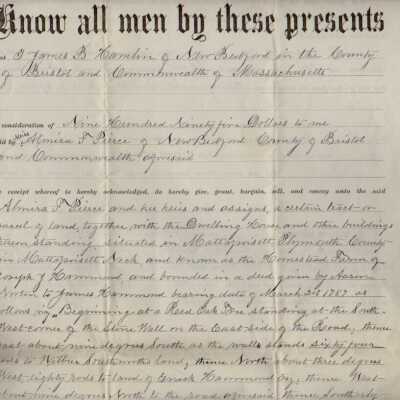 Know all men by these presents
I James B Hamlin of New Bedford in the County
of Bristol and Commonwealth of Massachusetts
consideration of Nine Hundred Ninety five Dollars to me
Miss
Almira F Pierce of New Bedford County of Bristol
and Commonwealth aforesaid
receipt whereof is hereby acknowledged, do hereby give, grant, bargain, sell, and convey unto the said
Almira F Pierce and her heirs and assigns, a certain tract or
parcel of land, together with the Dwelling House and other buildings
thereon standing, situated in Mattapoisett Plymouth County
in Mattapoisett Neck and known as the Homestead Farm of
Joseph J Hammond, and bounded in a deed given by Aaron
to James Hammond bearing date of March 24 1787 as
follows viz Beginning at a Red Oak Tree standing at the South
West corner of the Stone Wall on the East side of the Road, thence
East about nine degrees South as the wall stands sixty four
rods to land, thence North about three degrees
West eighty rods to land of Enoch Hammond, thence West
about nine degrees North to the road aforesaid thence Southerly